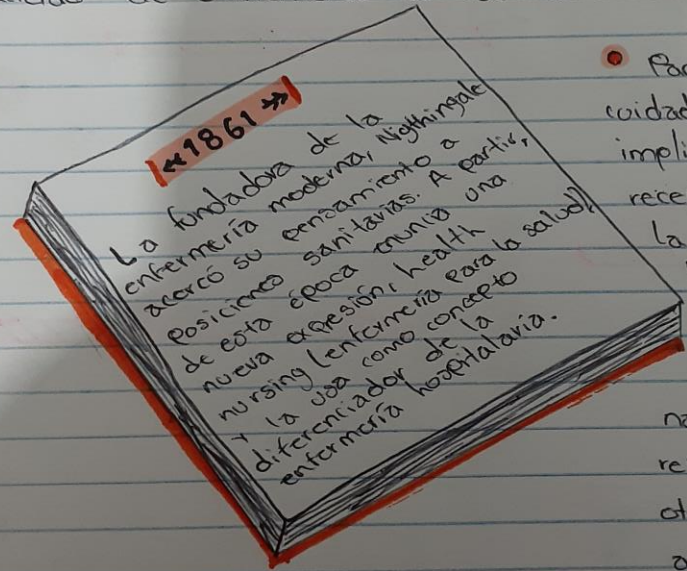 de
«1861»
La fundadora de la
enfermería moderna, Nigthingale
acercó su pensamiento a
posiciones sanitarias. A partir,
de esta época enuncia una
nueva expresión, health
nursing (enfermería para la salud)
y la usa como concepto
diferenciador de la
enfermería hospitalaria.
• Par
cuidad
impli
rece
la
na
re
ot
a